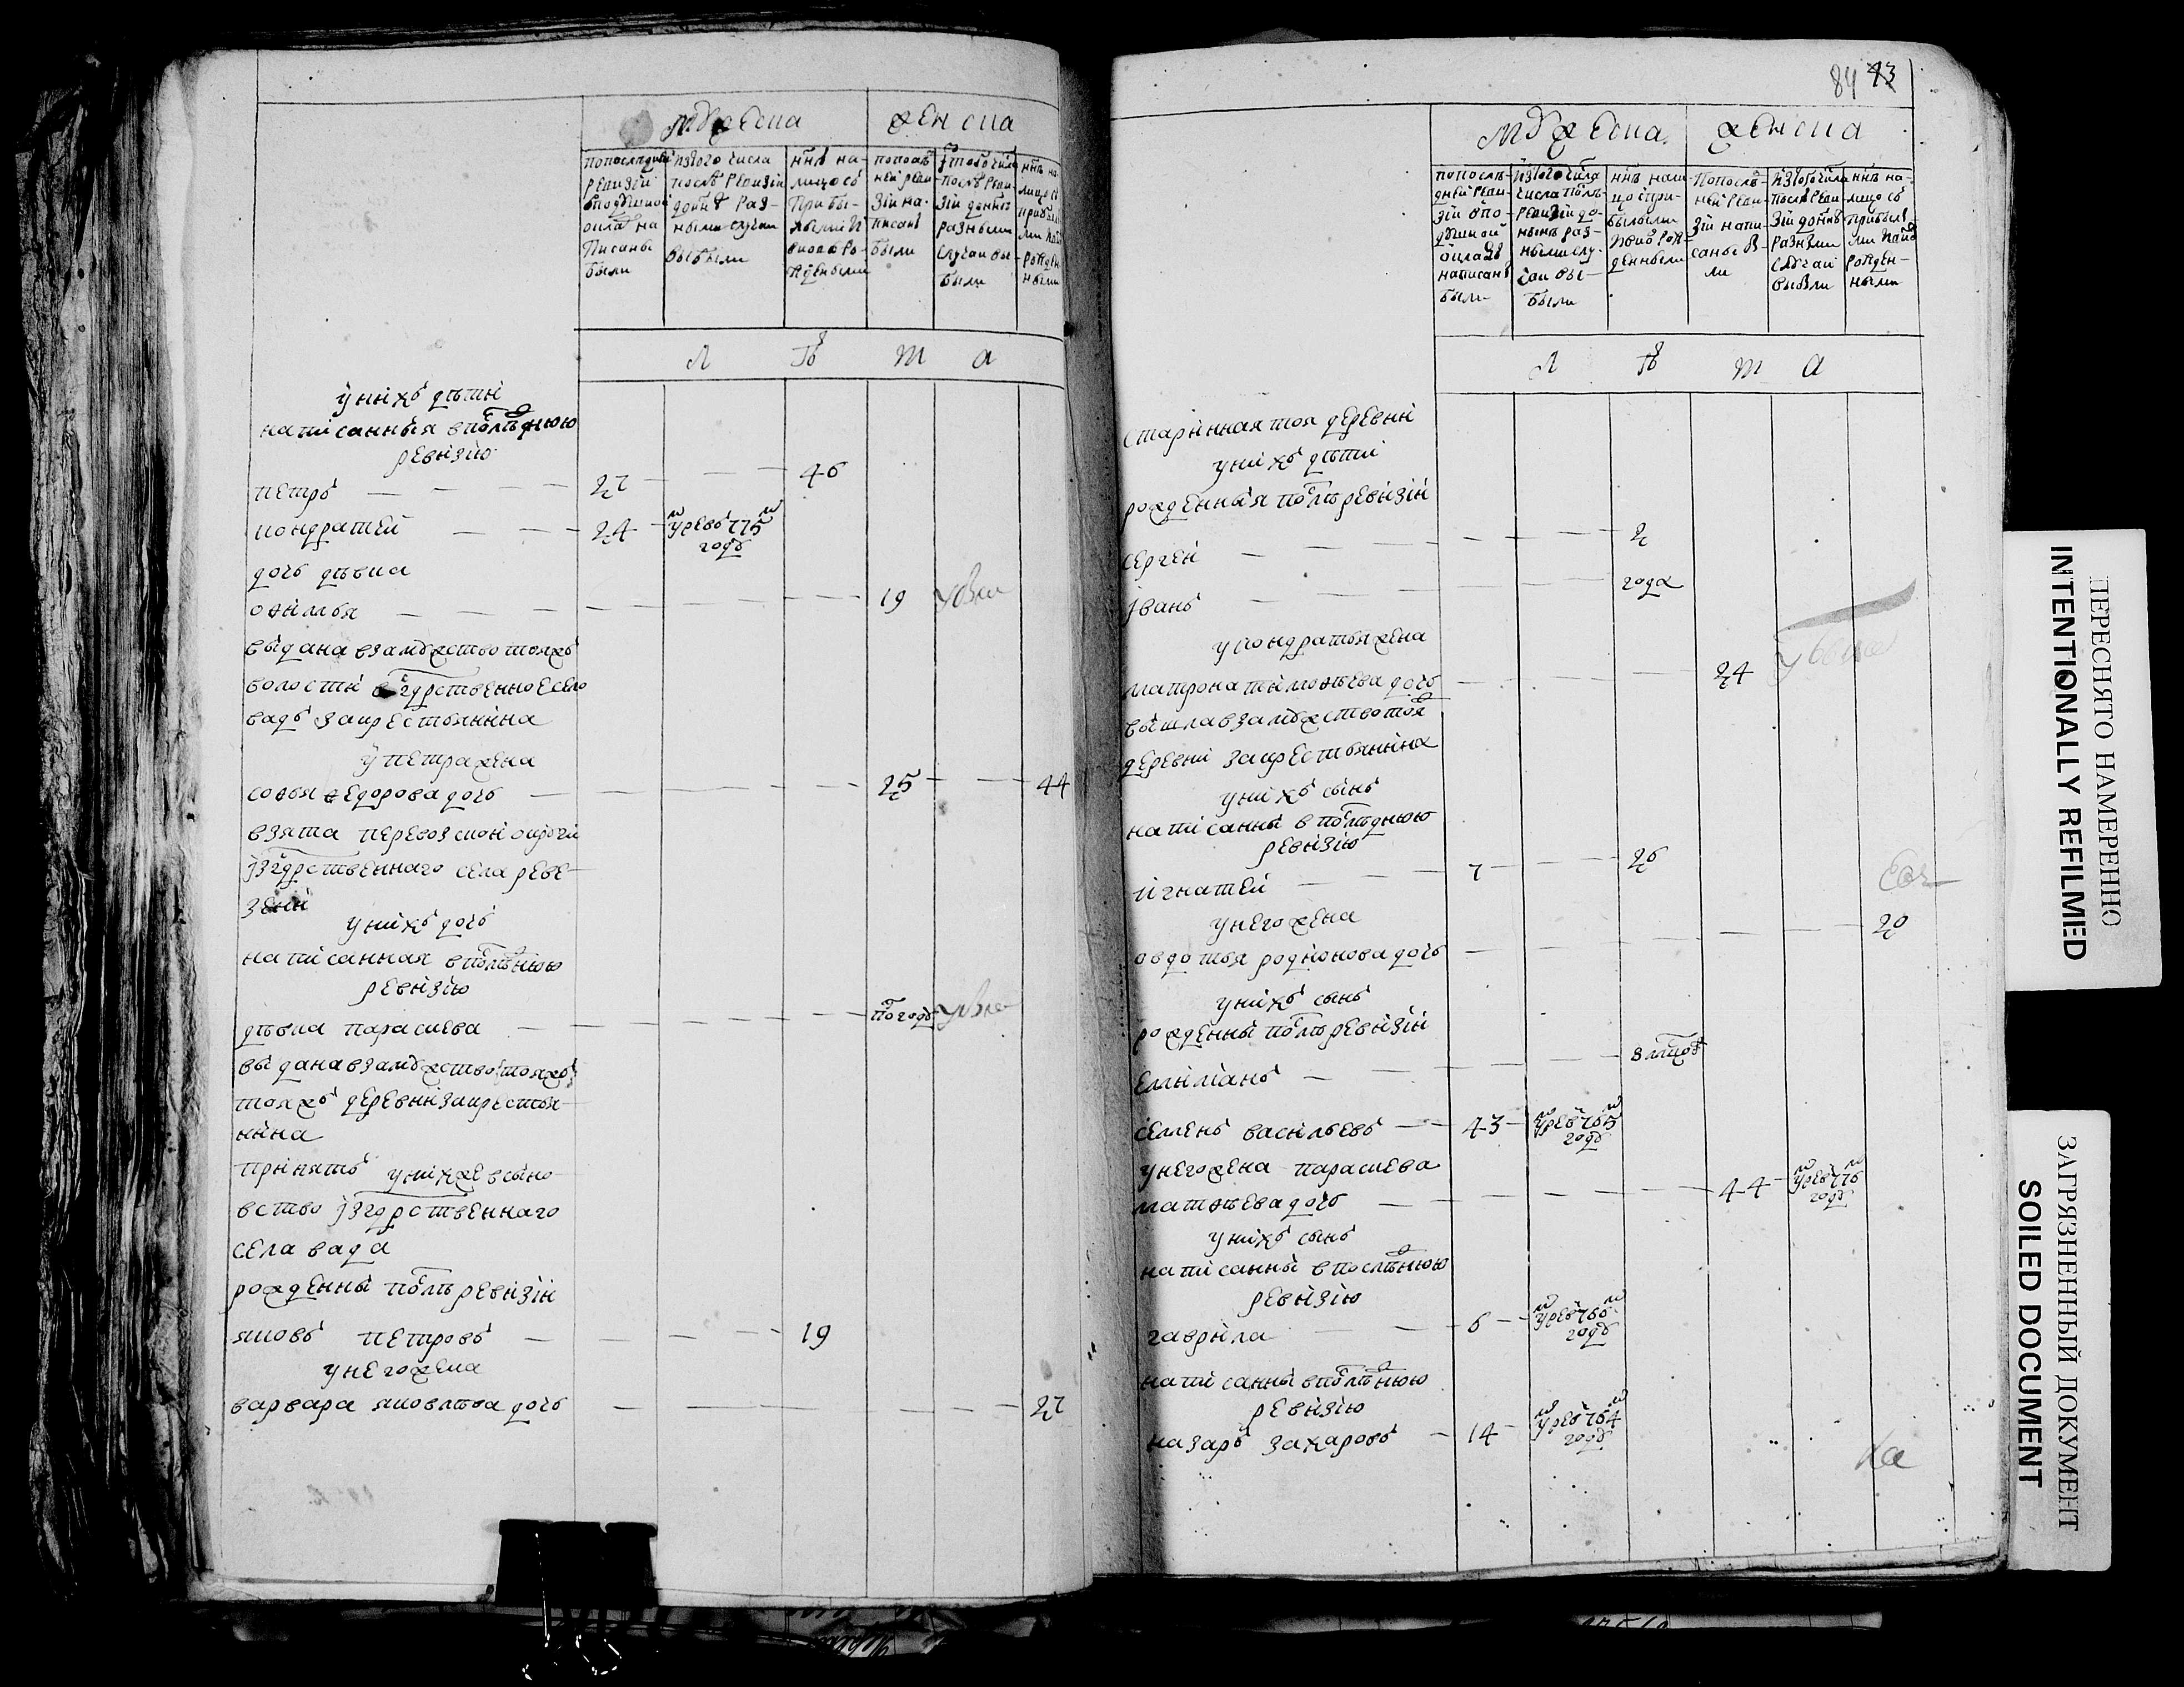 мужеска
женска
по последней
ревизии
в подушной
оклад на
писаны
были
из того числа
после ревизии
до нне раз-
ными случаи
выбыли
нне на-
лицо съ
прибы-
лыми и
вновь ро-
жденными
по послѣ
ней реви
зіи на-
писаны
были
из того числа
послѣ реви-
зіи до ннѣ
разными
случаи вы-
были
ннѣ на
лицо съ
прибыл
рожден
ными
Л ѣ т а
у нихъ дѣти
написанныя в послѣднюю
ревизию
петръ 27 46
кондратей 24 умре въ 775 м
году
дочь дѣвка
офимья 19
выдана в замужство тояжъ
волости в гдрственное село
вадъ за крестьянина
у петра жена
софья федорова дочь 25 44
взята перевозской округи
из гдрственнаго села реве-
зени
у нихъ дочь
написанная в послѣднюю
ревизию
дѣвка параскева полгоду
выдана в замужство тояжъ
тояжъ деревни за крестья-
нина
принятъ у нихже в сыно-
вство из гдрственнаго
села вада
рожденны послѣ ревизии
яковъ петровъ 19
у него жена
варвара яковлева дочь 27
84 43
мужеска
женска
по послѣ-
дней реви-
зіи в по-
душной
окладъ
написаны
были
из того числа
числа послѣ
ревизіи до
нынѣ раз-
ными слу-
чаи вы-
были
ннѣ нали-
цо с при-
былыми
и вновъ рож-
денными
по послѣ-
ней реви-
зіи напи-
саны бы-
ли
из того числа
послѣ реви-
зіи до ннѣ
разными
случаи
выбыли
ннѣ на-
лицо съ
прибылы
рожден-
ными
Л ѣ т а
старинная тоя деревни
у нихъ дѣти
рожденныя послѣ ревизии
сергеи 2
иванъ года
у кондратья жена
матрона тимофеева дочь 24
вышла в замужство тоя
деревни за крестьянина
у нихъ сынъ
написанны в послѣднюю
ревизию
игнатеи 7 26
у него жена 20
овдотья родионова дочь
у нихъ сынъ
рожденны послѣ ревизии
емилианъ 8 мцовъ
семенъ васильевъ 43 умре въ 765 м
году
у него жена параскева
матфеева дочь 44 умре въ 776 м
году
у нихъ сынъ
написанны в послѣднюю
ревизию
гаврила 6 умре въ 766 м
году
написанны в послѣднюю
ревизию
назаръ захаровъ 14 умре въ 764 м
году
ПЕРЕСНЯТО НАМЕРЕННО
INTENTIONALLY REFILMED
ЗАГРЯЗНЕННЫЙ ДОКУМЕНТ
SOILED DOCUMENT